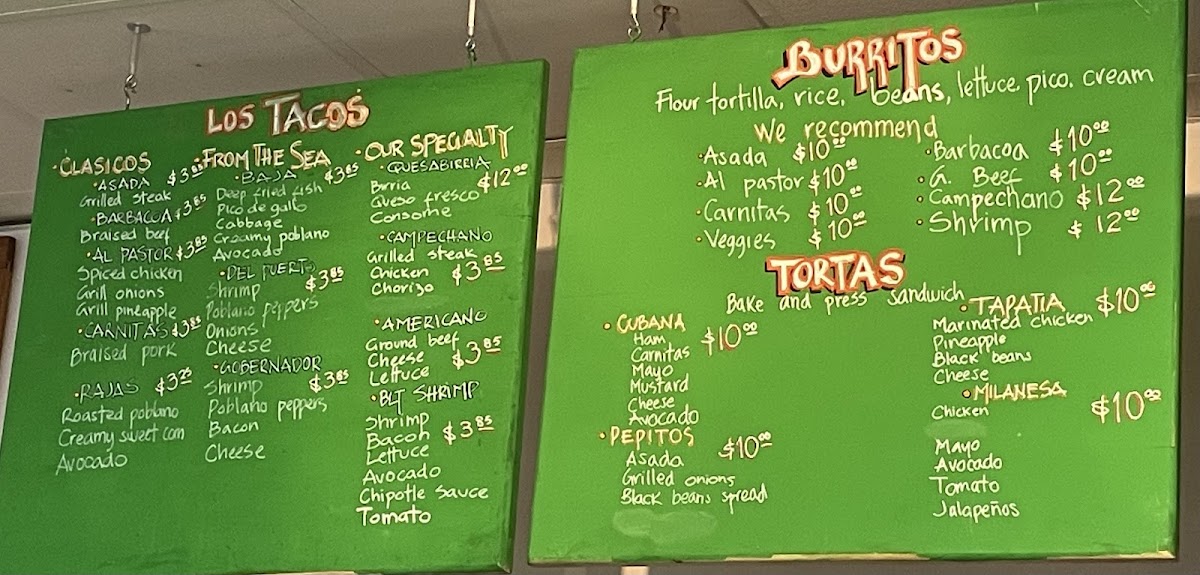 LOS TACOS
• CLASICOS
• ASADA $3.85
Grilled steak
• BARBACOA $3.85
Braised beef
• AL PASTOR $3.85
Spiced chicken
Grill onions
Grill pineapple
• CARNITAS $3.85
Braised pork
• RAJAS $3.25
Roasted poblano
Creamy sweet corn
Avocado
• FROM THE SEA
• BAJA $3.85
Deep fried fish
Pico de gallo
Cabbage
Creamy poblano
Avocado
• DEL PUERTO
Shrimp $3.85
Poblano peppers
Onions
Cheese
• GOBERNADOR
Shrimp $3.85
Poblano peppers
Bacon
Cheese
• OUR SPECIALTY
QUESABIRRIA
Birria $12.00
Queso fresco
Consome
• CAMPECHANO
Grilled steak
Chicken $3.85
Chorizo
• AMERICANO
Ground beef
Cheese $3.85
Lettuce
• BLT SHRIMP
Shrimp
Bacon $3.85
Lettuce
Avocado
Chipotle sauce
Tomato
BURRITOS
Flour tortilla, rice, beans, lettuce, pico, cream
We recommend
• Asada $10.00
• Al pastor $10.00
• Carnitas $10.00
• Veggies $10.00
• Barbacoa $10.00
• G. Beef $10.00
• Campechano $12.00
• Shrimp $12.00
TORTAS
Bake and press sandwich
• CUBANA
Ham $10.00
Carnitas
Mayo
Mustard
Cheese
Avocado
• PEPITOS
Asada $10.00
Grilled onions
Black beans spread
• TAPATIA $10.00
Marinated chicken
Pineapple
Black beans
Cheese
• MILANESA
Chicken $10.00
Mayo
Avocado
Tomato
Jalapeños